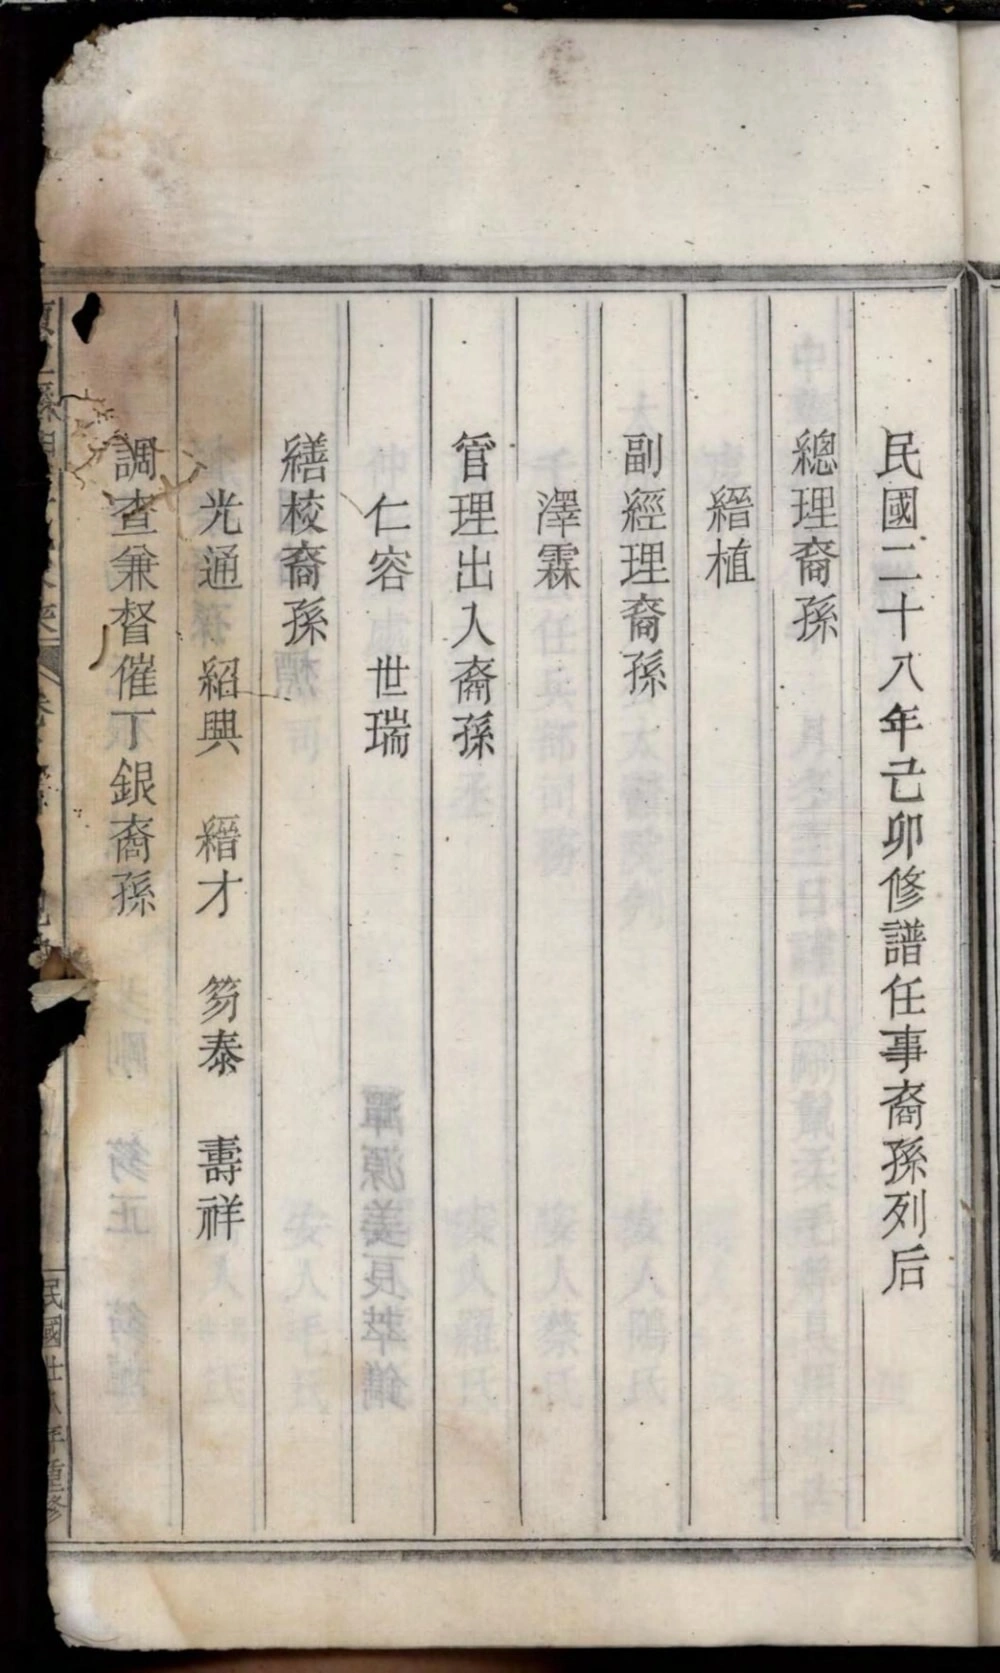 民國二十八年己卯修譜任事裔孫列后
總理裔孫
縉植
副經理裔孫
澤霖
管理出入裔孫
仁容　世瑞
繕校裔孫
光通　紹興　縉才　笏泰　壽祥
調查兼督催丁銀裔孫
民國廿八年重修